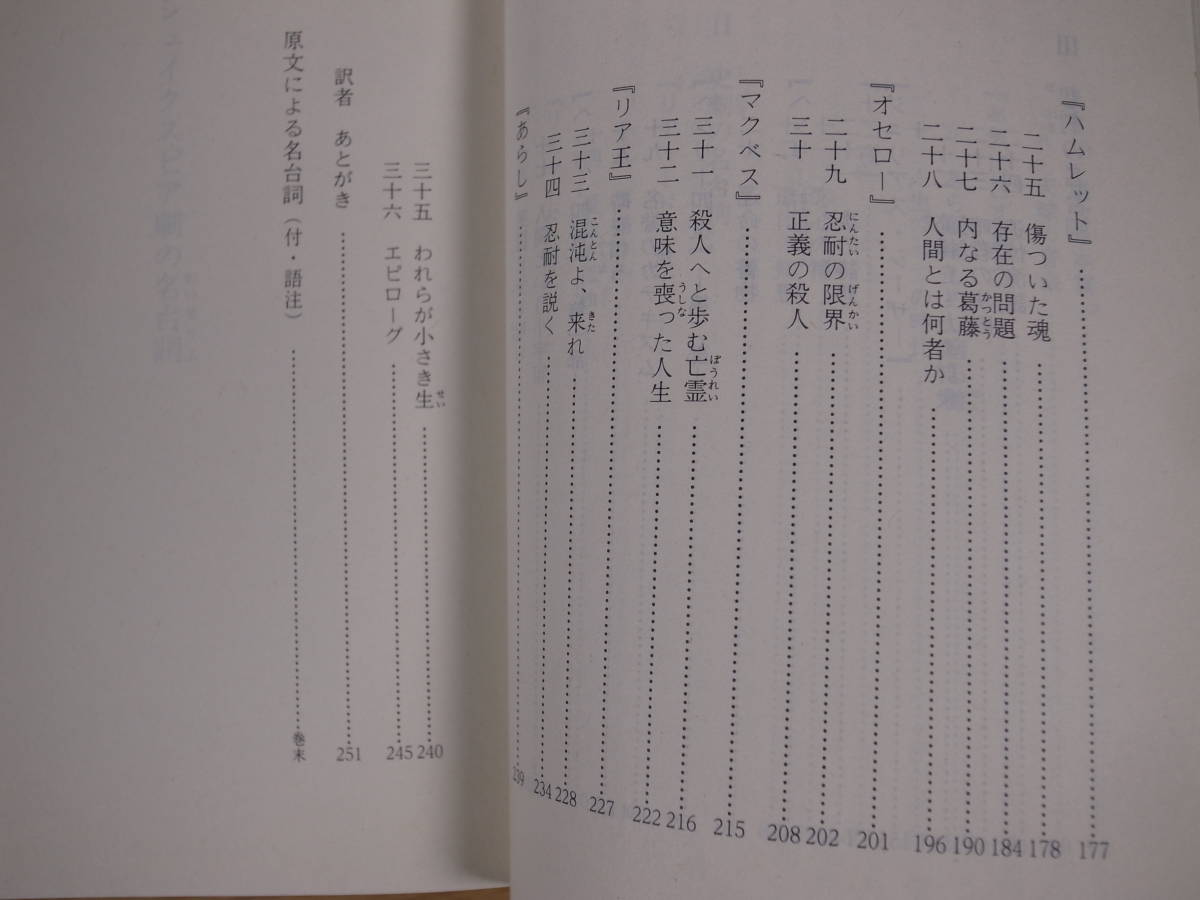 『ハムレット』……177
二十五 傷ついた魂……178
二十六 存在の問題……184
二十七 内なる葛藤……190
二十八 人間とは何者か……196
『オセロー』……201
二十九 忍耐の限界……202
三十 正義の殺人……208
『マクベス』……215
三十一 殺人へと歩む亡霊……216
三十二 意味を喪った人生……222
『リア王』……227
三十三 混沌よ、来れ……228
三十四 忍耐を説く……234
『あらし』……239
三十五 われらが小さき生……240
三十六 エピローグ……245
訳者 あとがき……251
原文による名台詞(付・語注)……巻末